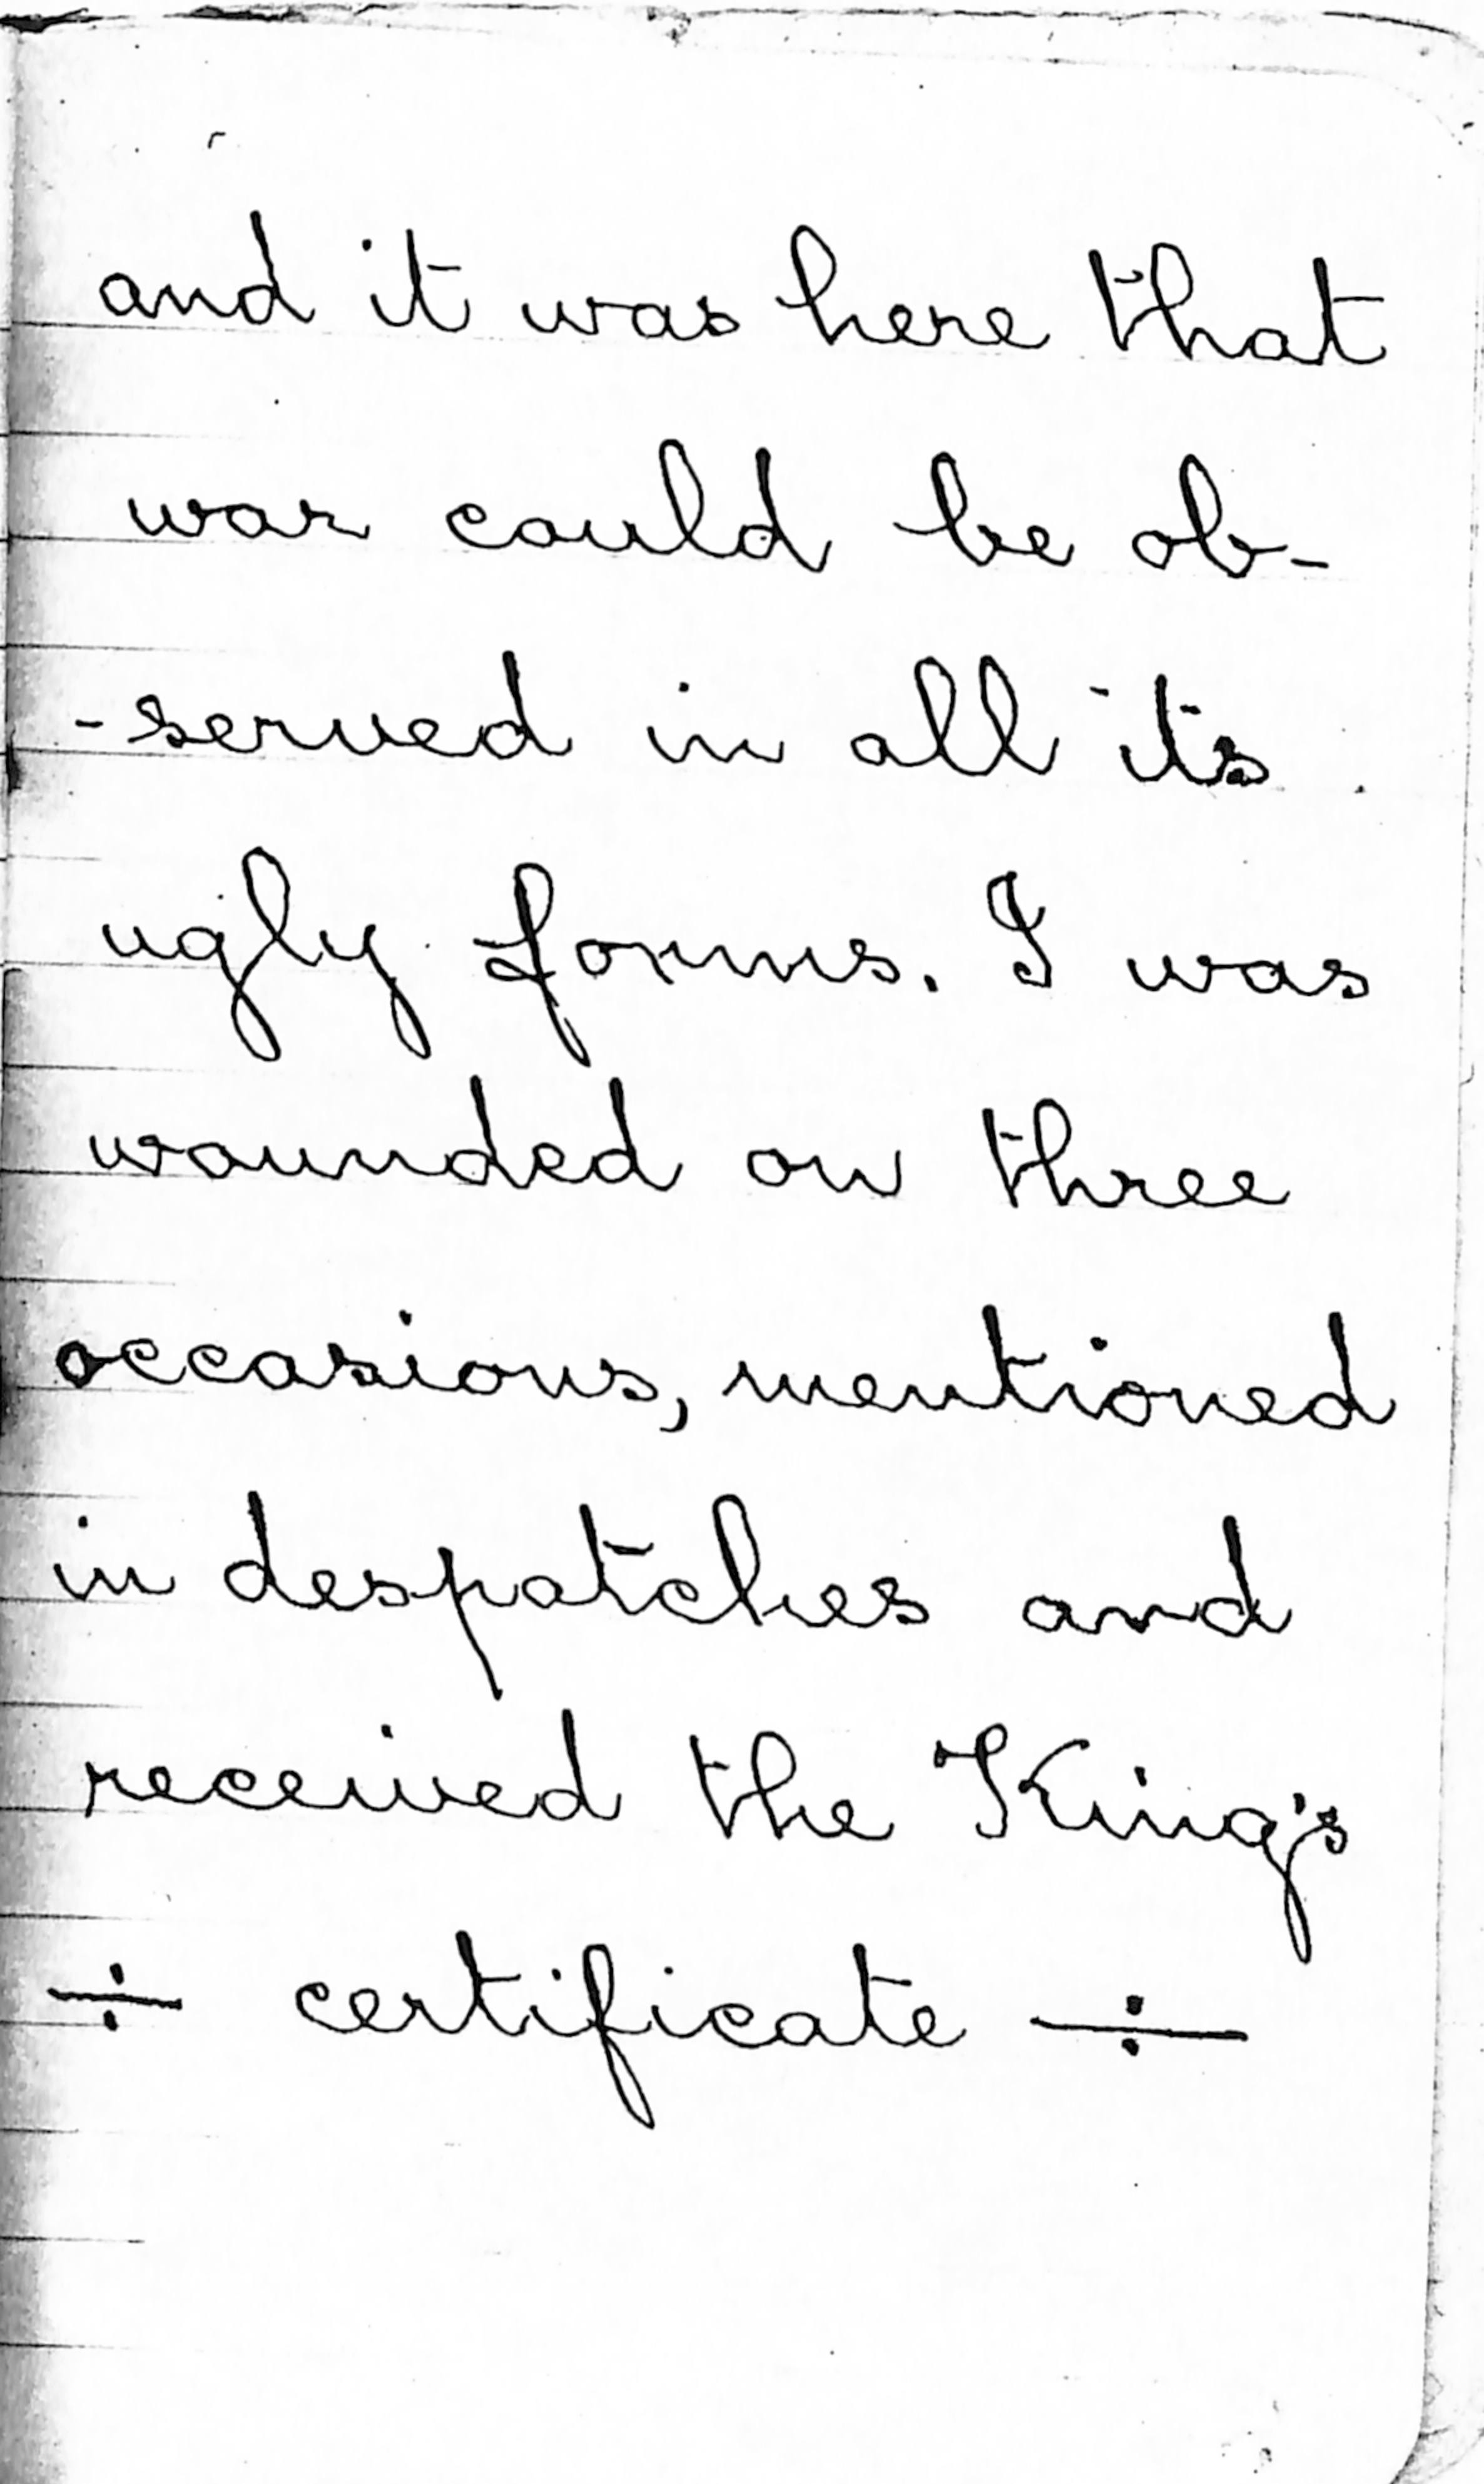 and it was here that
war could be ob-
-served in all its
ugly forms. I was
wounded on three
occasions, mentioned
in despatches and
received the King's
÷ certificate ÷